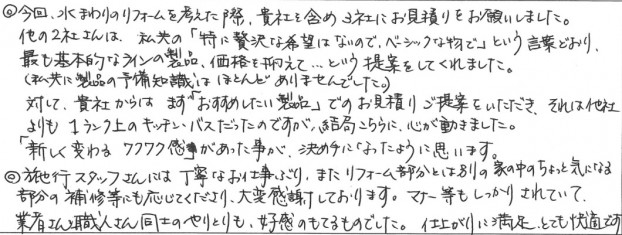 ◎今回、水まわりのリフォームを考えた際、貴社を含め3社にお見積りをお願いしました。
他の2社さんは、私共の「特に贅沢な希望はないので、ベーシックな物で」という言葉どおり、
最も基本的なラインの製品、価格を抑えて…という提案をしてくれました。
(私共に製品の予備知識はほとんどありませんでした。)
対して、貴社からはまず「おすすめしたい製品」でのお見積りご提案をいただき、それは他社
よりも1ランク上のキッチン・バスだったのですが、結局こちらに、心が動きました。
「新しく変わるワクワク感」があった事が、決め手になったように思います。
◎施行スタッフさんには丁寧なお仕事ぶり、またリフォーム部分とは別の家の中のちょっと気になる
部分の補修等にも応じてくださり、大変感謝しております。マナー等もしっかりされていて、
業者さんと職人さん同士のやりとりも、好感のもてるものでした。仕上がりに満足、とても快適です